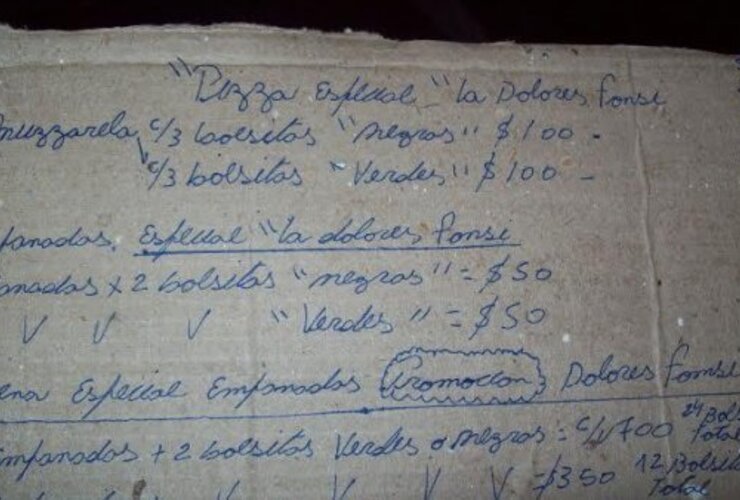 "Pizza Especial "la Dolores Fonsi
muzzarela c/3 bolsitas "negras" $100 -
c/3 bolsitas "Verdes" $100 -
Especial "la dolores fonsi
x 2 bolsitas "negras" = $50
V V V "Verdes" = $50
Especial Empanadas Promocion Dolores Fonsi
Empanadas + 2 bolsitas Verdes o negras = c/u 700 24 Bols Total
V V V = $350 12 Bolsit Total